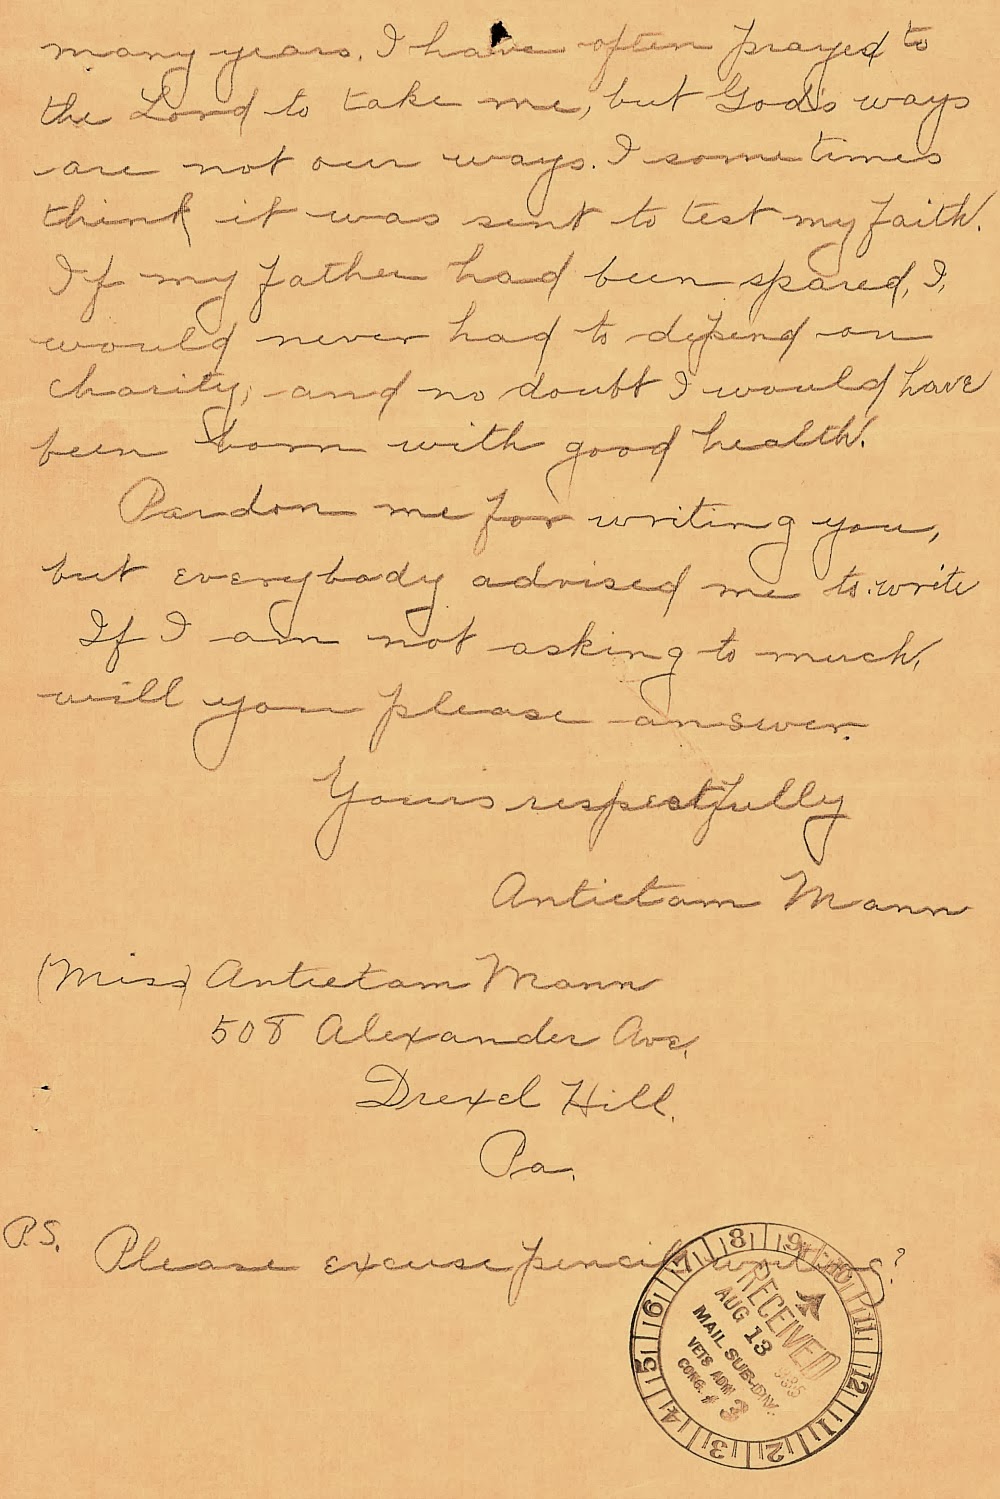 many years. I have often prayed to
the Lord to take me, but God's ways
are not our ways. I sometimes
think it was sent to test my faith.
If my father had been spared, I,
would never had to depend on
charity, and no doubt I would have
been born with good health.
Pardon me for writing you,
but everybody advised me to write
If I am not asking to much,
will you please answer.
Yours respectfully
Antietam Mann
(Miss) Antietam Mann
508 Alexander Ave.
Drexel Hill.
Pa.
P.S. Please excuse pencil writing?
RECEIVED
AUG 13 1935
MAIL SUB-DIV.
VETS ADM
CONG. # 3
1 2 3 4 5 6 7 8 9 10 11 12